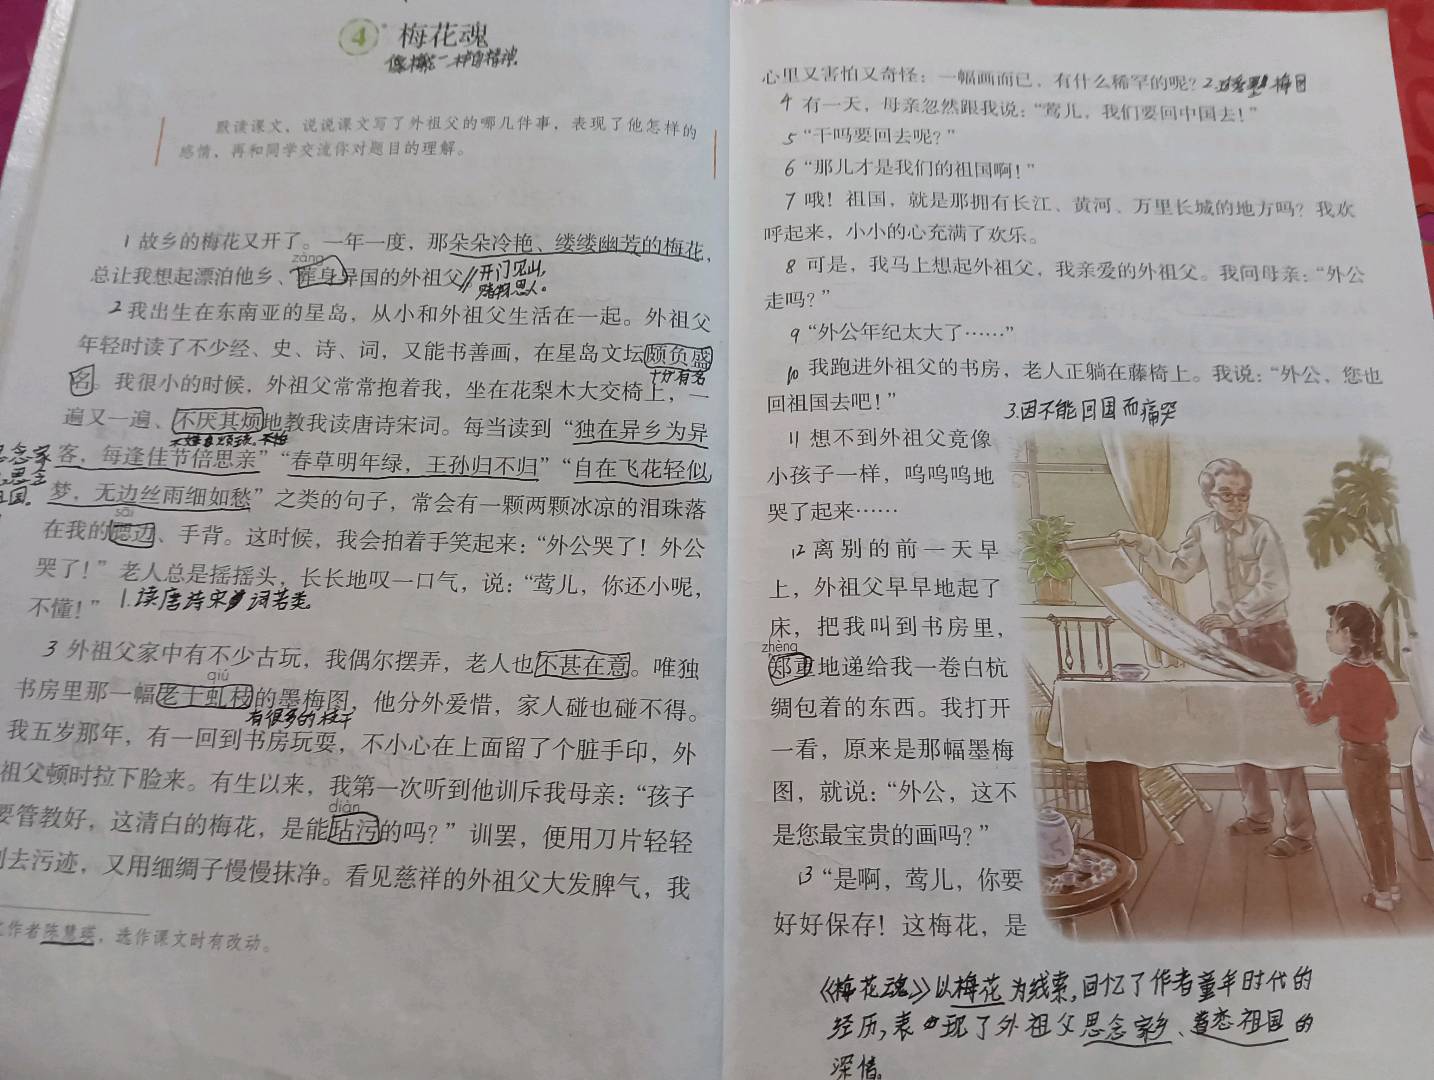 4 梅花魂
像梅花一样的精神
默读课文，说说课文写了外祖父的哪几件事，表现了他怎样的
感情，再和同学交流你对题目的理解。
1 故乡的梅花又开了。一年一度，那朵朵冷艳、缕缕幽芳的梅花，
zàng
总让我想起漂泊他乡、葬身异国的外祖父。
开门见山，
睹物思人。
2 我出生在东南亚的星岛，从小和外祖父生活在一起。外祖父
年轻时读了不少经、史、诗、词，又能书善画，在星岛文坛颇负盛
十分有名
名。我很小的时候，外祖父常常抱着我，坐在花梨木大交椅上，一
遍又一遍、不厌其烦地教我读唐诗宋词。每当读到“独在异乡为异
客，每逢佳节倍思亲”“春草明年绿，王孙归不归”“自在飞花轻似
念家
国。
梦，无边丝雨细如愁”之类的句子，常会有一颗两颗冰凉的泪珠落
sāi
在我的腮边、手背。这时候，我会拍着手笑起来：“外公哭了！外公
哭了！”老人总是摇摇头，长长地叹一口气，说：“莺儿，你还小呢，
不懂！”
1.读唐诗宋词落泪
3 外祖父家中有不少古玩，我偶尔摆弄，老人也不甚在意。唯独
qiú
书房里那一幅老干虬枝的墨梅图，他分外爱惜，家人碰也碰不得。
有很多的枝干
我五岁那年，有一回到书房玩耍，不小心在上面留了个脏手印，外
祖父顿时拉下脸来。有生以来，我第一次听到他训斥我母亲：“孩子
diàn
要管教好，这清白的梅花，是能玷污的吗？”训罢，便用刀片轻轻
去污迹，又用细绸子慢慢抹净。看见慈祥的外祖父大发脾气，我
作者陈慧瑛，选作课文时有改动。
心里又害怕又奇怪：一幅画而已，有什么稀罕的呢？
2.珍爱墨梅图
4 有一天，母亲忽然跟我说：“莺儿，我们要回中国去！”
5 “干吗要回去呢？”
6 “那儿才是我们的祖国啊！”
7 哦！祖国，就是那拥有长江、黄河、万里长城的地方吗？我欢
呼起来，小小的心充满了欢乐。
8 可是，我马上想起外祖父，我亲爱的外祖父。我问母亲：“外公
走吗？”
9 “外公年纪太大了……”
10 我跑进外祖父的书房，老人正躺在藤椅上。我说：“外公，您也
回祖国去吧！”
3.因不能回国而痛哭
11 想不到外祖父竟像
小孩子一样，呜呜呜地
哭了起来……
12 离别的前一天早
上，外祖父早早地起了
床，把我叫到书房里，
zhèng
郑重地递给我一卷白杭
绸包着的东西。我打开
一看，原来是那幅墨梅
图，就说：“外公，这不
是您最宝贵的画吗？”
13 “是啊，莺儿，你要
好好保存！这梅花，是
《梅花魂》以梅花为线索，回忆了作者童年时代的
经历，表现了外祖父思念家乡、眷恋祖国的
深情。